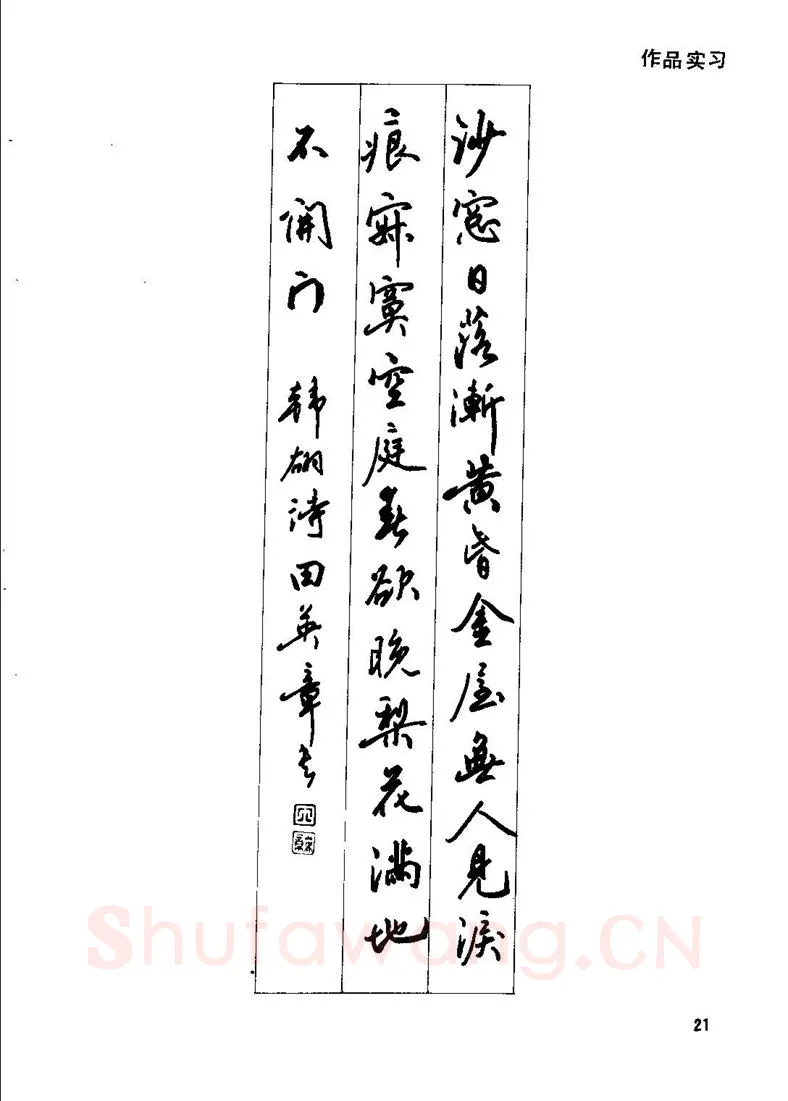 作品实习
沙窓日落漸黄昏金屋無人見淚
痕寂寞空庭春欲晚梨花滿地
不開门 韩翃诗田英章书
Shufawang.CN
21